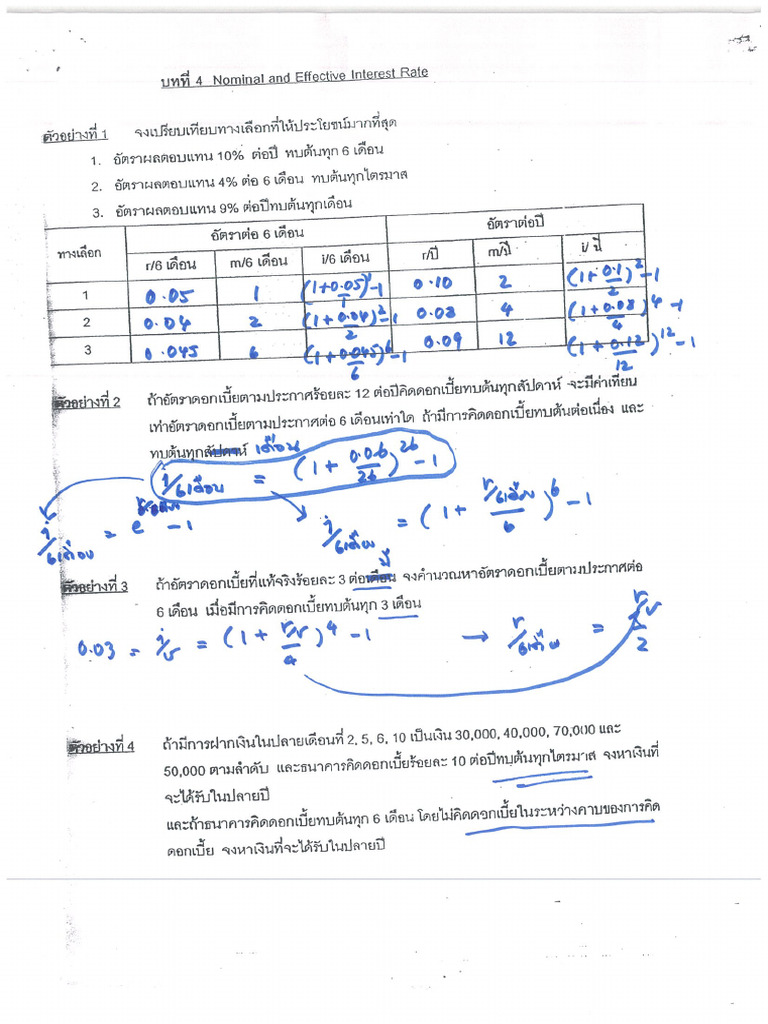 บทที่ 4 Nominal and Effective Interest Rate
ตัวอย่างที่ 1 จงเปรียบเทียบทางเลือกที่ให้ประโยชน์มากที่สุด
1. อัตราผลตอบแทน 10% ต่อปี ทบต้นทุก 6 เดือน
2. อัตราผลตอบแทน 4% ต่อ 6 เดือน ทบต้นทุกไตรมาส
3. อัตราผลตอบแทน 9% ต่อปีทบต้นทุกเดือน
ทางเลือก อัตราต่อ 6 เดือน อัตราต่อปี
r/6 เดือน m/6 เดือน i/6 เดือน r/ปี m/ปี i/ ปี
1 0.05 1 (1+0.05/1)^1-1 0.10 2 (1+0.1/2)^2-1
2 0.04 2 (1+0.04/2)^2-1 0.08 4 (1+0.08/4)^4-1
3 0.045 6 (1+0.045/6)^6-1 0.09 12 (1+0.12/12)^12-1
ตัวอย่างที่ 2 ถ้าอัตราดอกเบี้ยตามประกาศร้อยละ 12 ต่อปีคิดดอกเบี้ยทบต้นทุกสัปดาห์ จะมีค่าเทียบ
เท่าอัตราดอกเบี้ยตามประกาศต่อ 6 เดือนเท่าใด ถ้ามีการคิดดอกเบี้ยทบต้นต่อเนื่อง และ
ทบต้นทุกสัปดาห์ เดือน
i/6เดือน = (1 + 0.06/26)^26 - 1
i/6เดือน = e^r/6เดือน - 1
i/6เดือน = (1 + r/6เดือน/6)^6 - 1
ปี
ตัวอย่างที่ 3 ถ้าอัตราดอกเบี้ยที่แท้จริงร้อยละ 3 ต่อเดือน จงคำนวณหาอัตราดอกเบี้ยตามประกาศต่อ
6 เดือน เมื่อมีการคิดดอกเบี้ยทบต้นทุก 3 เดือน
0.03 = i/ป = (1 + r/ป/4)^4 - 1 → r/6เดือน = r/ป/2
ตัวอย่างที่ 4 ถ้ามีการฝากเงินในปลายเดือนที่ 2, 5, 6, 10 เป็นเงิน 30,000, 40,000, 70,000 และ
50,000 ตามลำดับ และธนาคารคิดดอกเบี้ยร้อยละ 10 ต่อปีทบต้นทุกไตรมาส จงหาเงินที่
จะได้รับในปลายปี
และถ้าธนาคารคิดดอกเบี้ยทบต้นทุก 6 เดือน โดยไม่คิดดอกเบี้ยในระหว่างคาบของการคิด
ดอกเบี้ย จงหาเงินที่จะได้รับในปลายปี